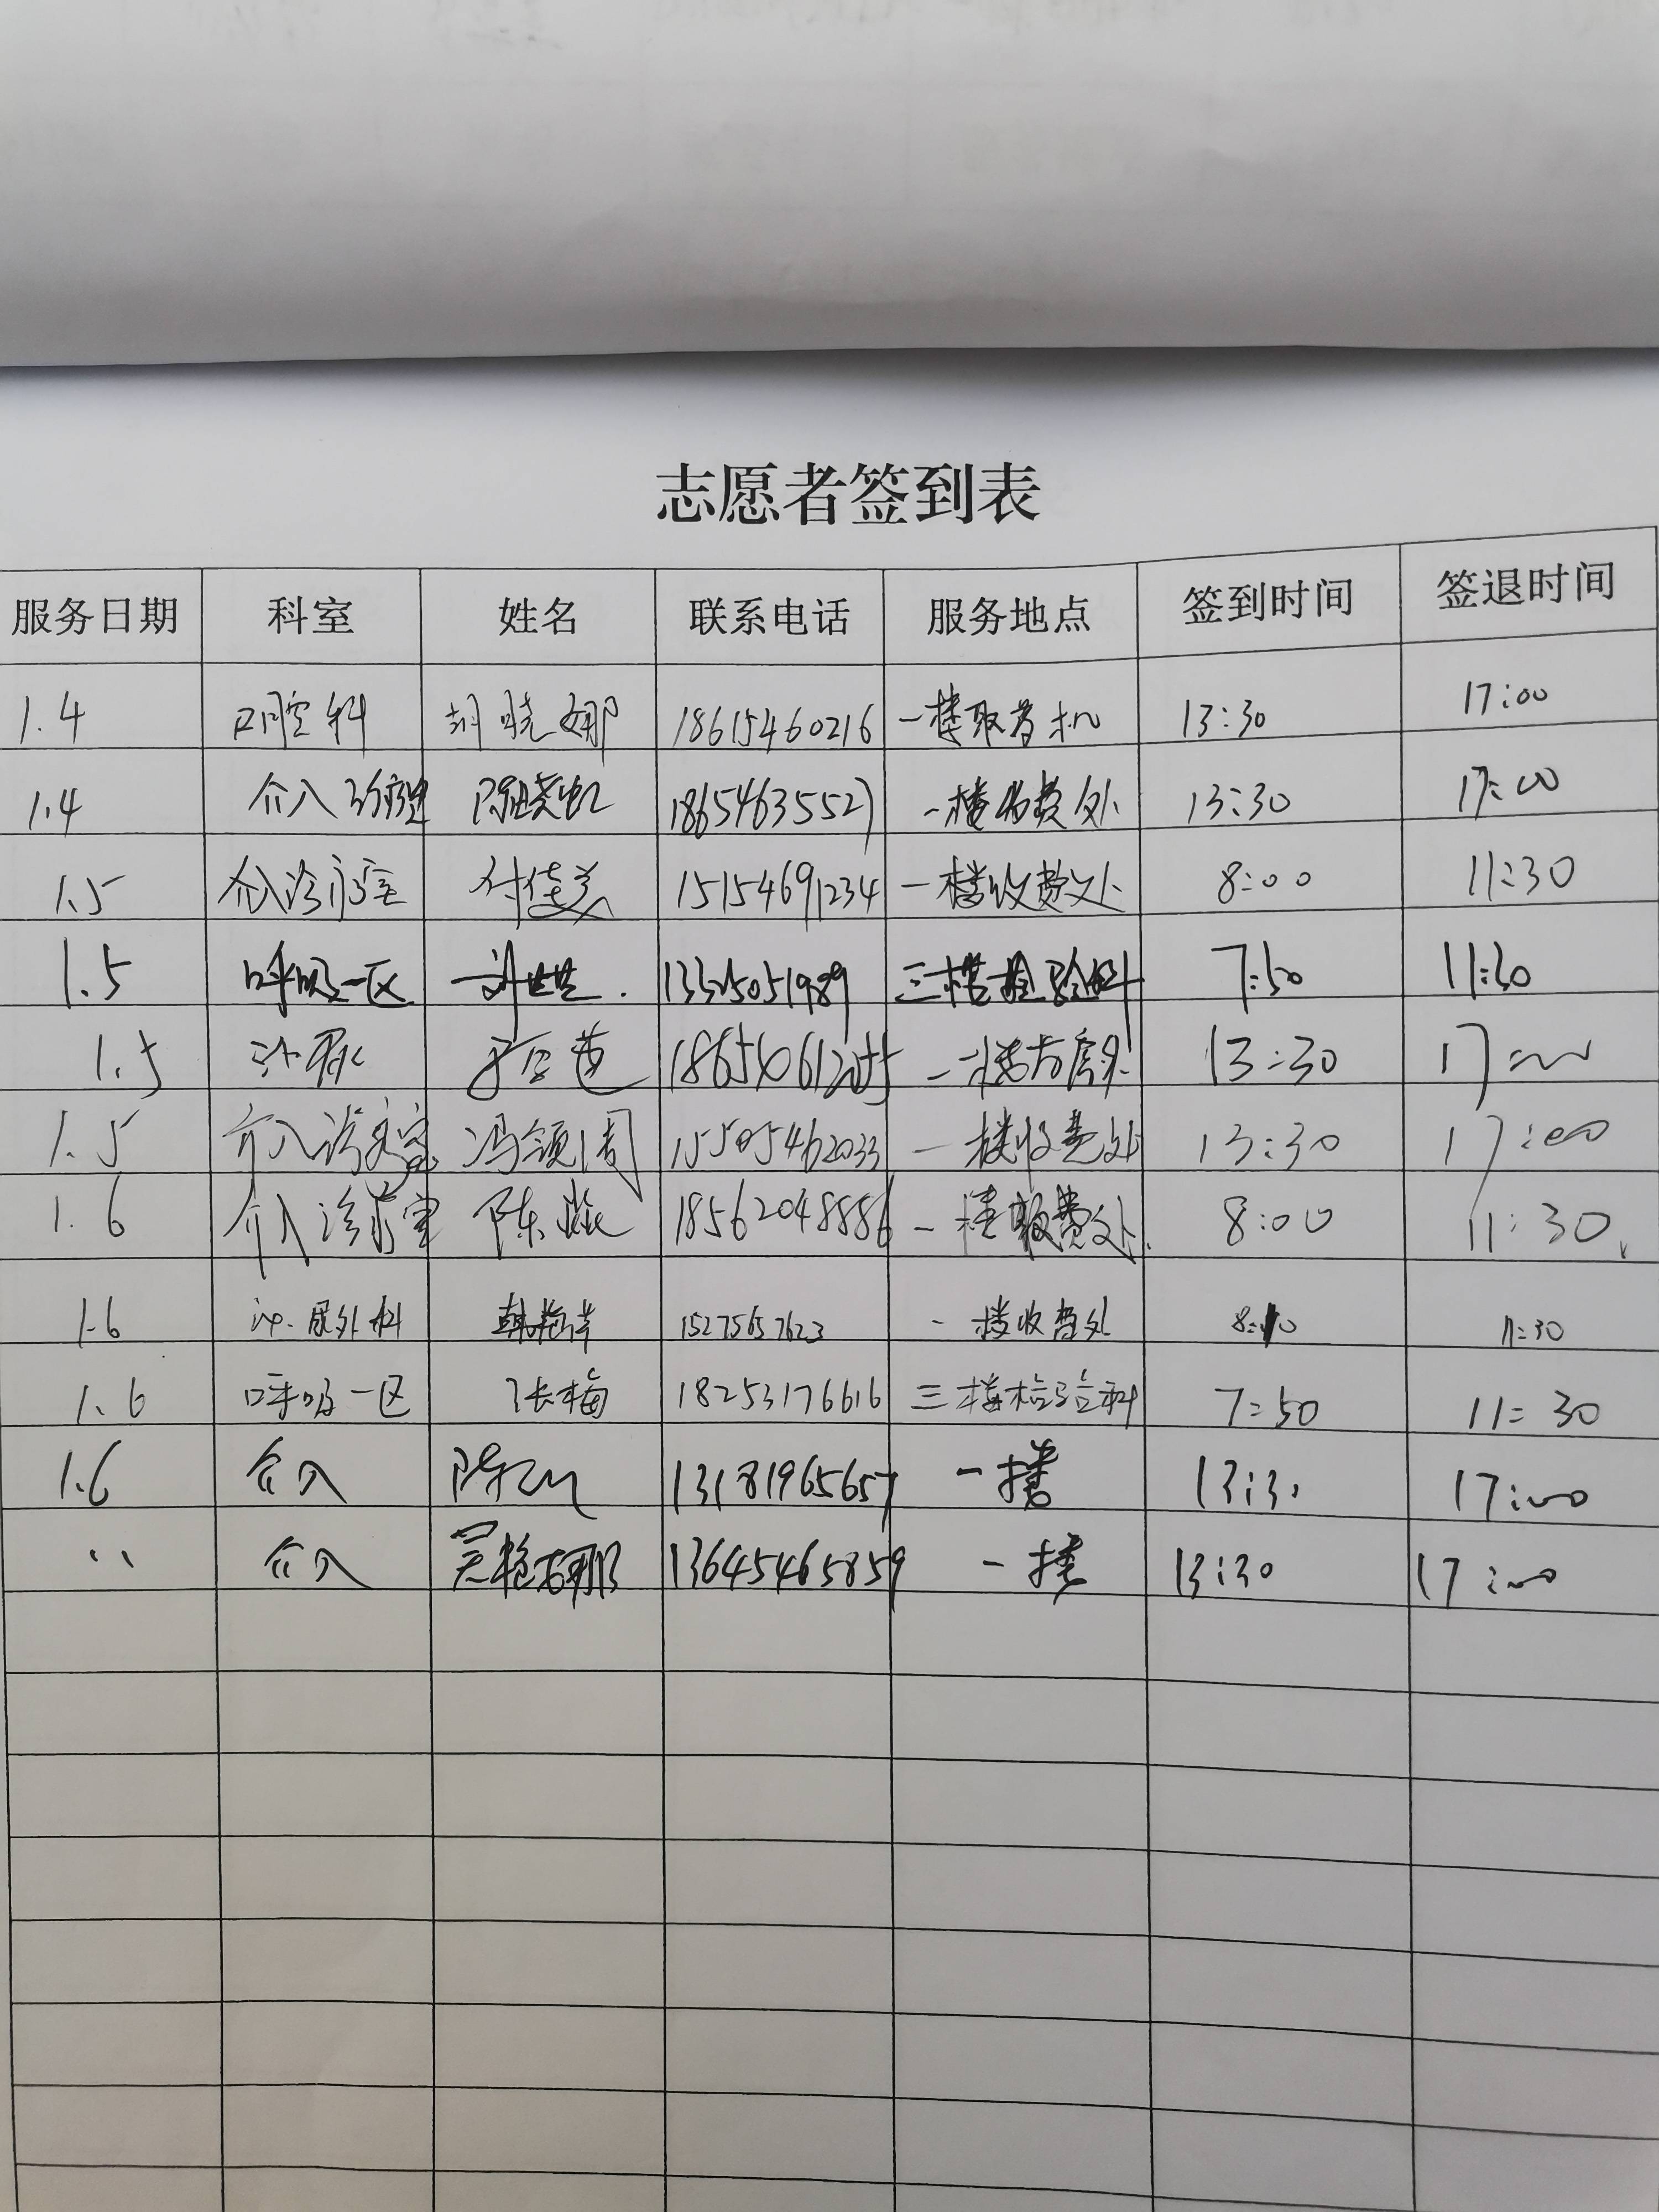 志愿者签到表
服务日期 科室 姓名 联系电话 服务地点 签到时间 签退时间
1.4 口腔科 胡晓娜 18615460216 一楼取 机 13:30 17:00
1.4 介入 陈晓虹 18654635527 一楼收费处 13:30 17:00
1.5 介入诊疗室 付佳美 15154691234 一楼收费处 8:00 11:30
1.5 呼吸一区 三楼检验科 7:50 11:30
1.5 13:30 17:00
1.5 介入诊疗室 冯领周 15505462033 一楼收费处 13:30 17:00
1.6 介入诊疗室 陈 18562048886 一楼 费处 8:00 11:30
1.6 泌尿外科 韩艳萍 15275657623 一楼收费处 11:30
1.6 呼吸一区 张梅 18253176616 三楼检验科 7:50 11:30
1.6 介入 陈 13181965657 一楼 13:30 17:00
〃 介入 娜 13645465859 一楼 13:30 17:00